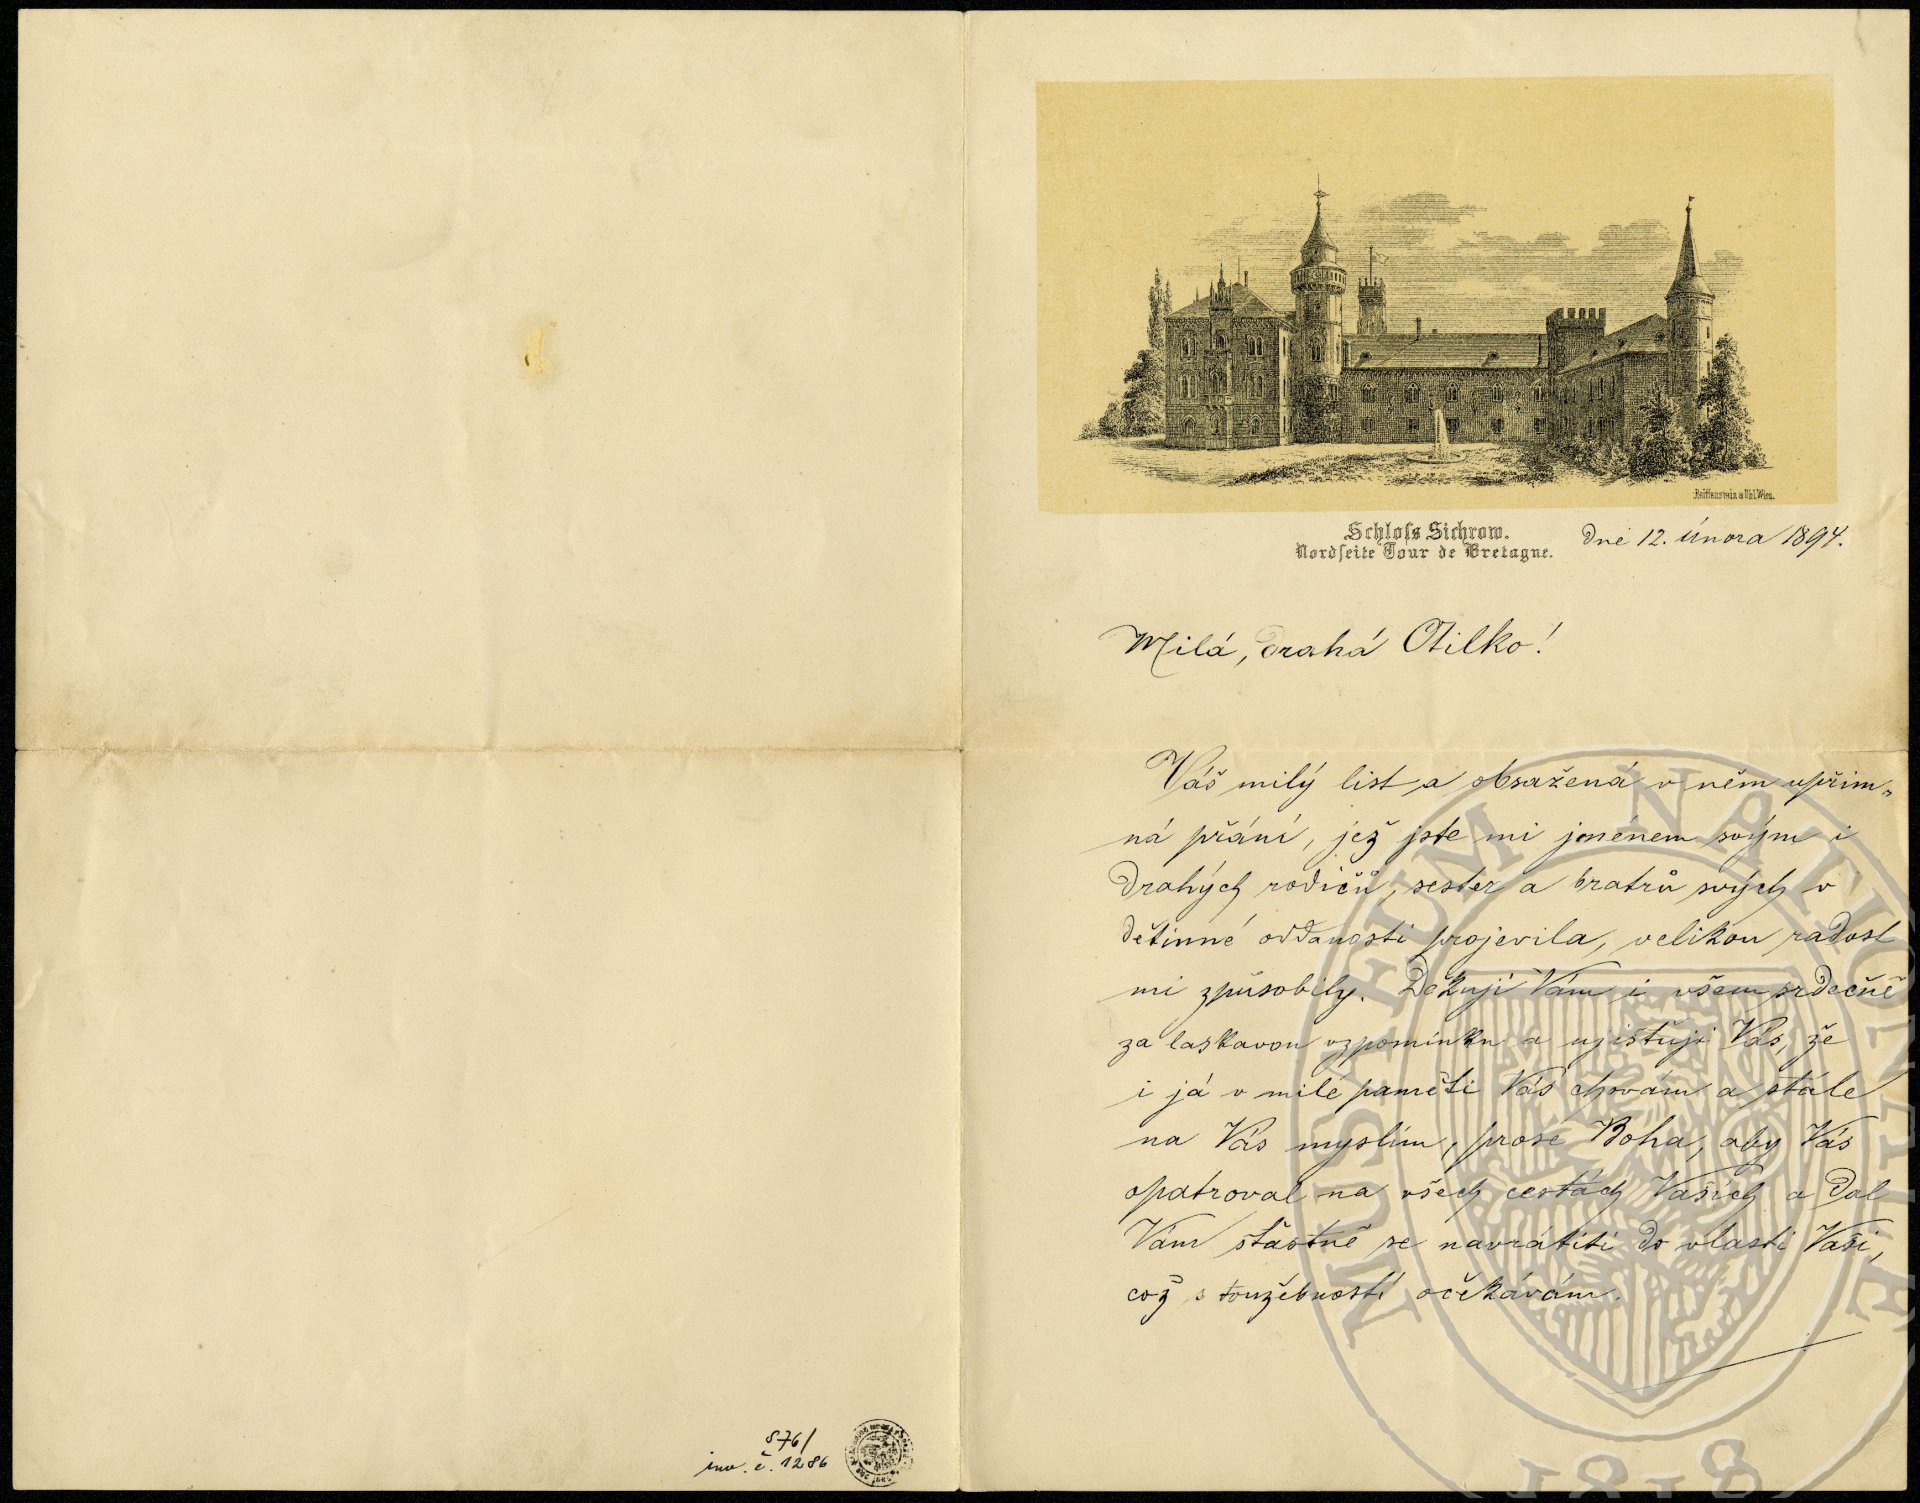 Reiffenstein & Uhl Wien.
Schloſs Sichrow.
Nordſeite Tour de Bretagne.
dne 12. února 1894.
Milá, drahá Otilko!
Váš milý list a obsažená v něm upřim-
ná přání, jež jste mi jménem svým i
drahých rodičů, sester a bratrů svých v
dětinné oddanosti projevila, velikou radost
mi způsobily. Děkuji Vám i všem srdečně
za laskavou vzpomínku a ujišťuji Vás, že
i já v milé paměti Vás chovám a stále
na Vás myslím, prosě Boha, aby Vás
opatroval na všech cestách Vašich a dal
Vám šťastně se navrátiti do vlasti Vaší,
což s toužebností očekávám.
876/
inv. č. 1286
MUSEUM NATIONALE
1818